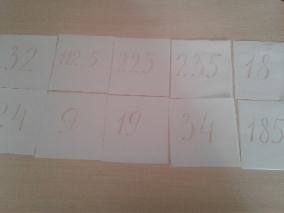 32 112.5 225 235 18
24 9 19 34 185